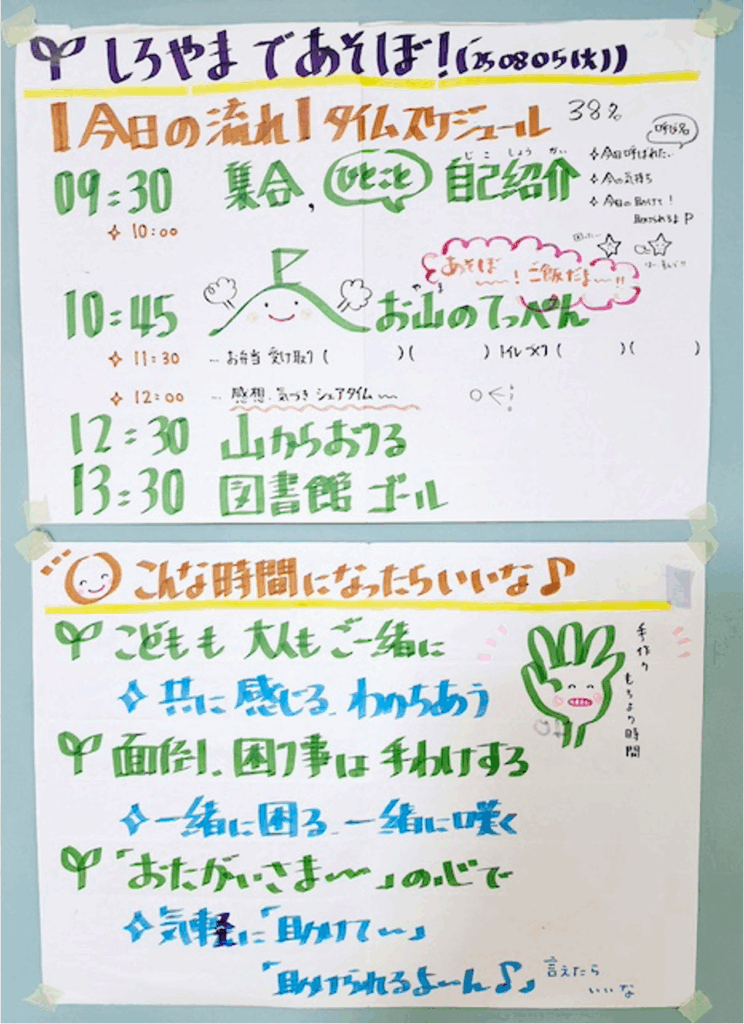 しろやまであそぼ!('250805(火))
【今日の流れ】タイムスケジュール 38%
呼び名
09:30 集合, ひとこと 自己紹介
じこしょうかい
✧今日呼ばれたい
✧今の気持ち
✧今日の助けて!
助けられるよP
✧10:00
あそぼ〜〜!ご飯だよ〜〜!!
10:45 お山のてっぺん
やま
✧11:30 … お弁当 受け取り( )( ) トイレづくり( )( )
✧12:00 … 感想、気づき シェアタイム〜〜
12:30 山からおりる
13:30 図書館 ゴール
こんな時間になったらいいな♪
こどもも 大人もご一緒に
✧共に感じる、わかちあう
手作り もちより時間
面倒、困り事は 手わけする
✧一緒に困る、一緒に咲く
「おたがいさま〜〜」の心で
✧気軽に「助けて〜」
「助けられるよ〜ん♪」言えたら
いいな